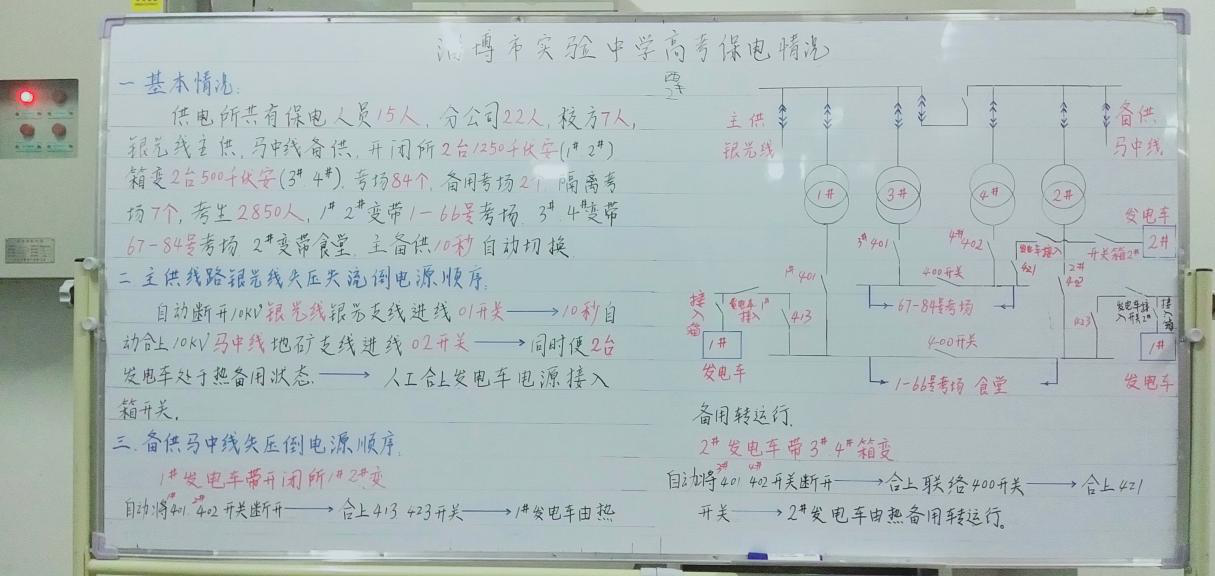 淄博市实验中学高考保电情况
一 基本情况:
供电所共有保电人员15人, 分公司22人, 校方7人,
银光线主供, 马中线备供, 开闭所2台1250千伏安(1# 2#)
箱变2台500千伏安(3# 4#), 考场84个, 备用考场2个, 隔离考
场7个, 考生2850人, 1# 2#变带1-66号考场, 3#.4#变带
67-84号考场 2#变带食堂, 主备供10秒自动切换
二 主供线路银光线失压失流倒电源顺序:
自动断开10KV银光线银光支线进线01开关→10秒自
动合上10KV马中线地矿支线进线02开关→同时使2台
发电车处于热备用状态.→人工合上发电车电源接入
箱开关.
三.备供马中线失压倒电源顺序:
1#发电车带开闭所1#2#变
自动将1#401 2#402开关断开→合上413 423开关→1#发电车由热
主供
银光线
备供
马中线
1#
3#
4#
2#
发电车
2#
3#401
4#402
发电车接入
开关箱2#
421
400开关
1#401
2#
402
67-84号考场
接入箱
发电车1#
接入
413
423
发电车接
入开关2#
接入箱
1#
发电车
400开关
1#
发电车
1-66号考场 食堂
备用转运行.
2#发电车带3#.4#箱变
自动将3#401 4#402开关断开→合上联络400开关→合上421
开关→2#发电车由热备用转运行。